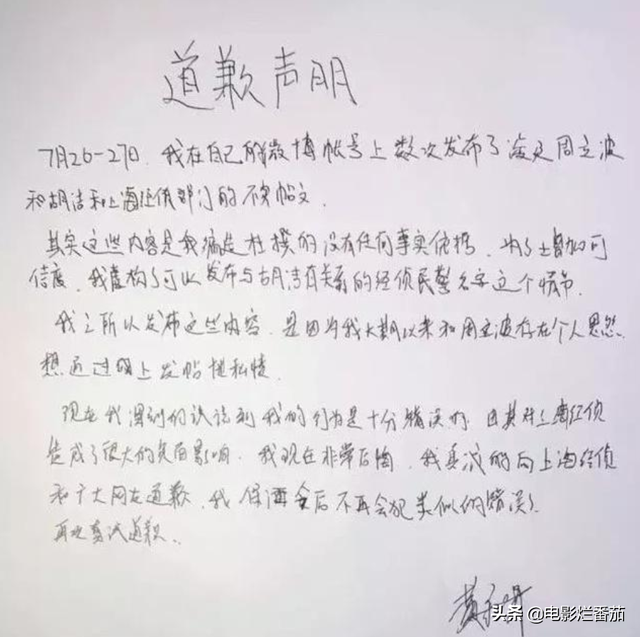 道歉声明
7月26-27日，我在自己的微博帐号上数次发布了涉及周立波
和胡洁和上海经侦部门的不实帖文。
其实这些内容是我编造杜撰的没有任何事实依据，为了增加可
信度，我虚构了可以发布与胡洁有关系的经侦民警名字这个情节。
我之所以发布这些内容，是因为我长期以来和周立波存在个人恩怨
想通过网上发帖泄私愤。
现在我深刻的认识到我的行为是十分错误的，尤其对上海经侦
造成了很大的负面影响，我现在非常后悔，我真诚的向上海经侦
和广大网友道歉，我保证今后不再会犯类似的错误，
再次真诚道歉。
头条 @电影烂番茄